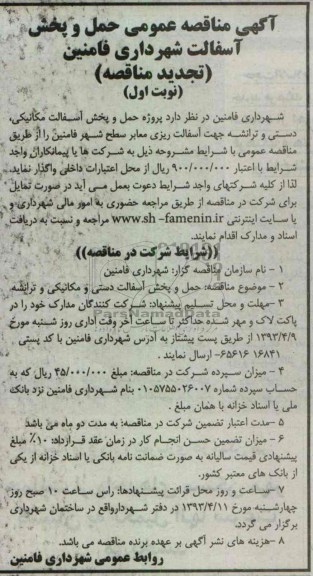 آگهی مناقصه عمومی حمل و پخش
آسفالت شهرداری فامنین
(تجدید مناقصه)
(نوبت اول)
شهرداری فامنین در نظر دارد پروژه حمل و پخش آسفالت مکانیکی،
دستی و ترانشه جهت آسفالت ریزی معابر سطح شهر فامنین را از طریق
مناقصه عمومی با شرایط مشروحه ذیل به شرکت ها یا پیمانکاران واجد
شرایط با اعتبار ۹۰۰/۰۰۰/۰۰۰ ریال از محل اعتبارات داخلی واگذار نماید.
لذا از کلیه شرکتهای واجد شرایط دعوت بعمل می آید در صورت تمایل
برای شرکت در مناقصه از طریق مراجعه حضوری به امور مالی شهرداری و
یا سایت اینترنتی www.sh -famenin.ir مراجعه و نسبت به دریافت
اسناد و مدارک اقدام نمایند.
((شرایط شرکت در مناقصه))
۱ - نام سازمان مناقصه گزار: شهرداری فامنین
۲ - موضوع مناقصه: حمل و پخش آسفالت دستی و مکانیکی و ترانشه
۳ -مهلت و محل تسلیم پیشنهاد: شرکت کنندگان مدارک خود را در
پاکت لاک و مهر شده حداکثر تا ساعت آخر وقت اداری روز شنبه مورخ
۱۳۹۳/۴/۹ از طریق پست پیشتاز به آدرس شهرداری فامنین با کد پستی
۱۶۸۴۱ ۶۵۶۱۶- ارسال نمایند .
۴ - میزان سپرده شرکت در مناقصه: مبلغ ۴۵/۰۰۰/۰۰۰ ریال که به
حساب سپرده شماره ۰۱۰۵۷۵۵۰۲۶۰۰۷ بنام شهرداری فامنین نزد بانک
ملی یا اسناد خزانه با همان مبلغ .
۵ -مدت اعتبار تضمین شرکت در مناقصه: به مدت دو ماه می باشد
۶ - میزان تضمین حسن انجام کار در زمان عقد قرارداد: ۱۰٪ مبلغ
پیشنهادی قیمت سالیانه به صورت ضمانت نامه بانکی یا اسناد خزانه از یکی
از بانک های معتبر کشور.
۷ -ساعت و روز محل قرائت پیشنهادها: راس ساعت ۱۰ صبح روز
چهارشنبه مورخ ۱۳۹۳/۴/۱۱ در دفتر شهردارواقع در ساختمان شهرداری
برگزار می گردد.
۸ -هزینه های نشر آگهی بر عهده برنده مناقصه می باشد.
روابط عمومی شهرداری فامنین
ParsNamadData